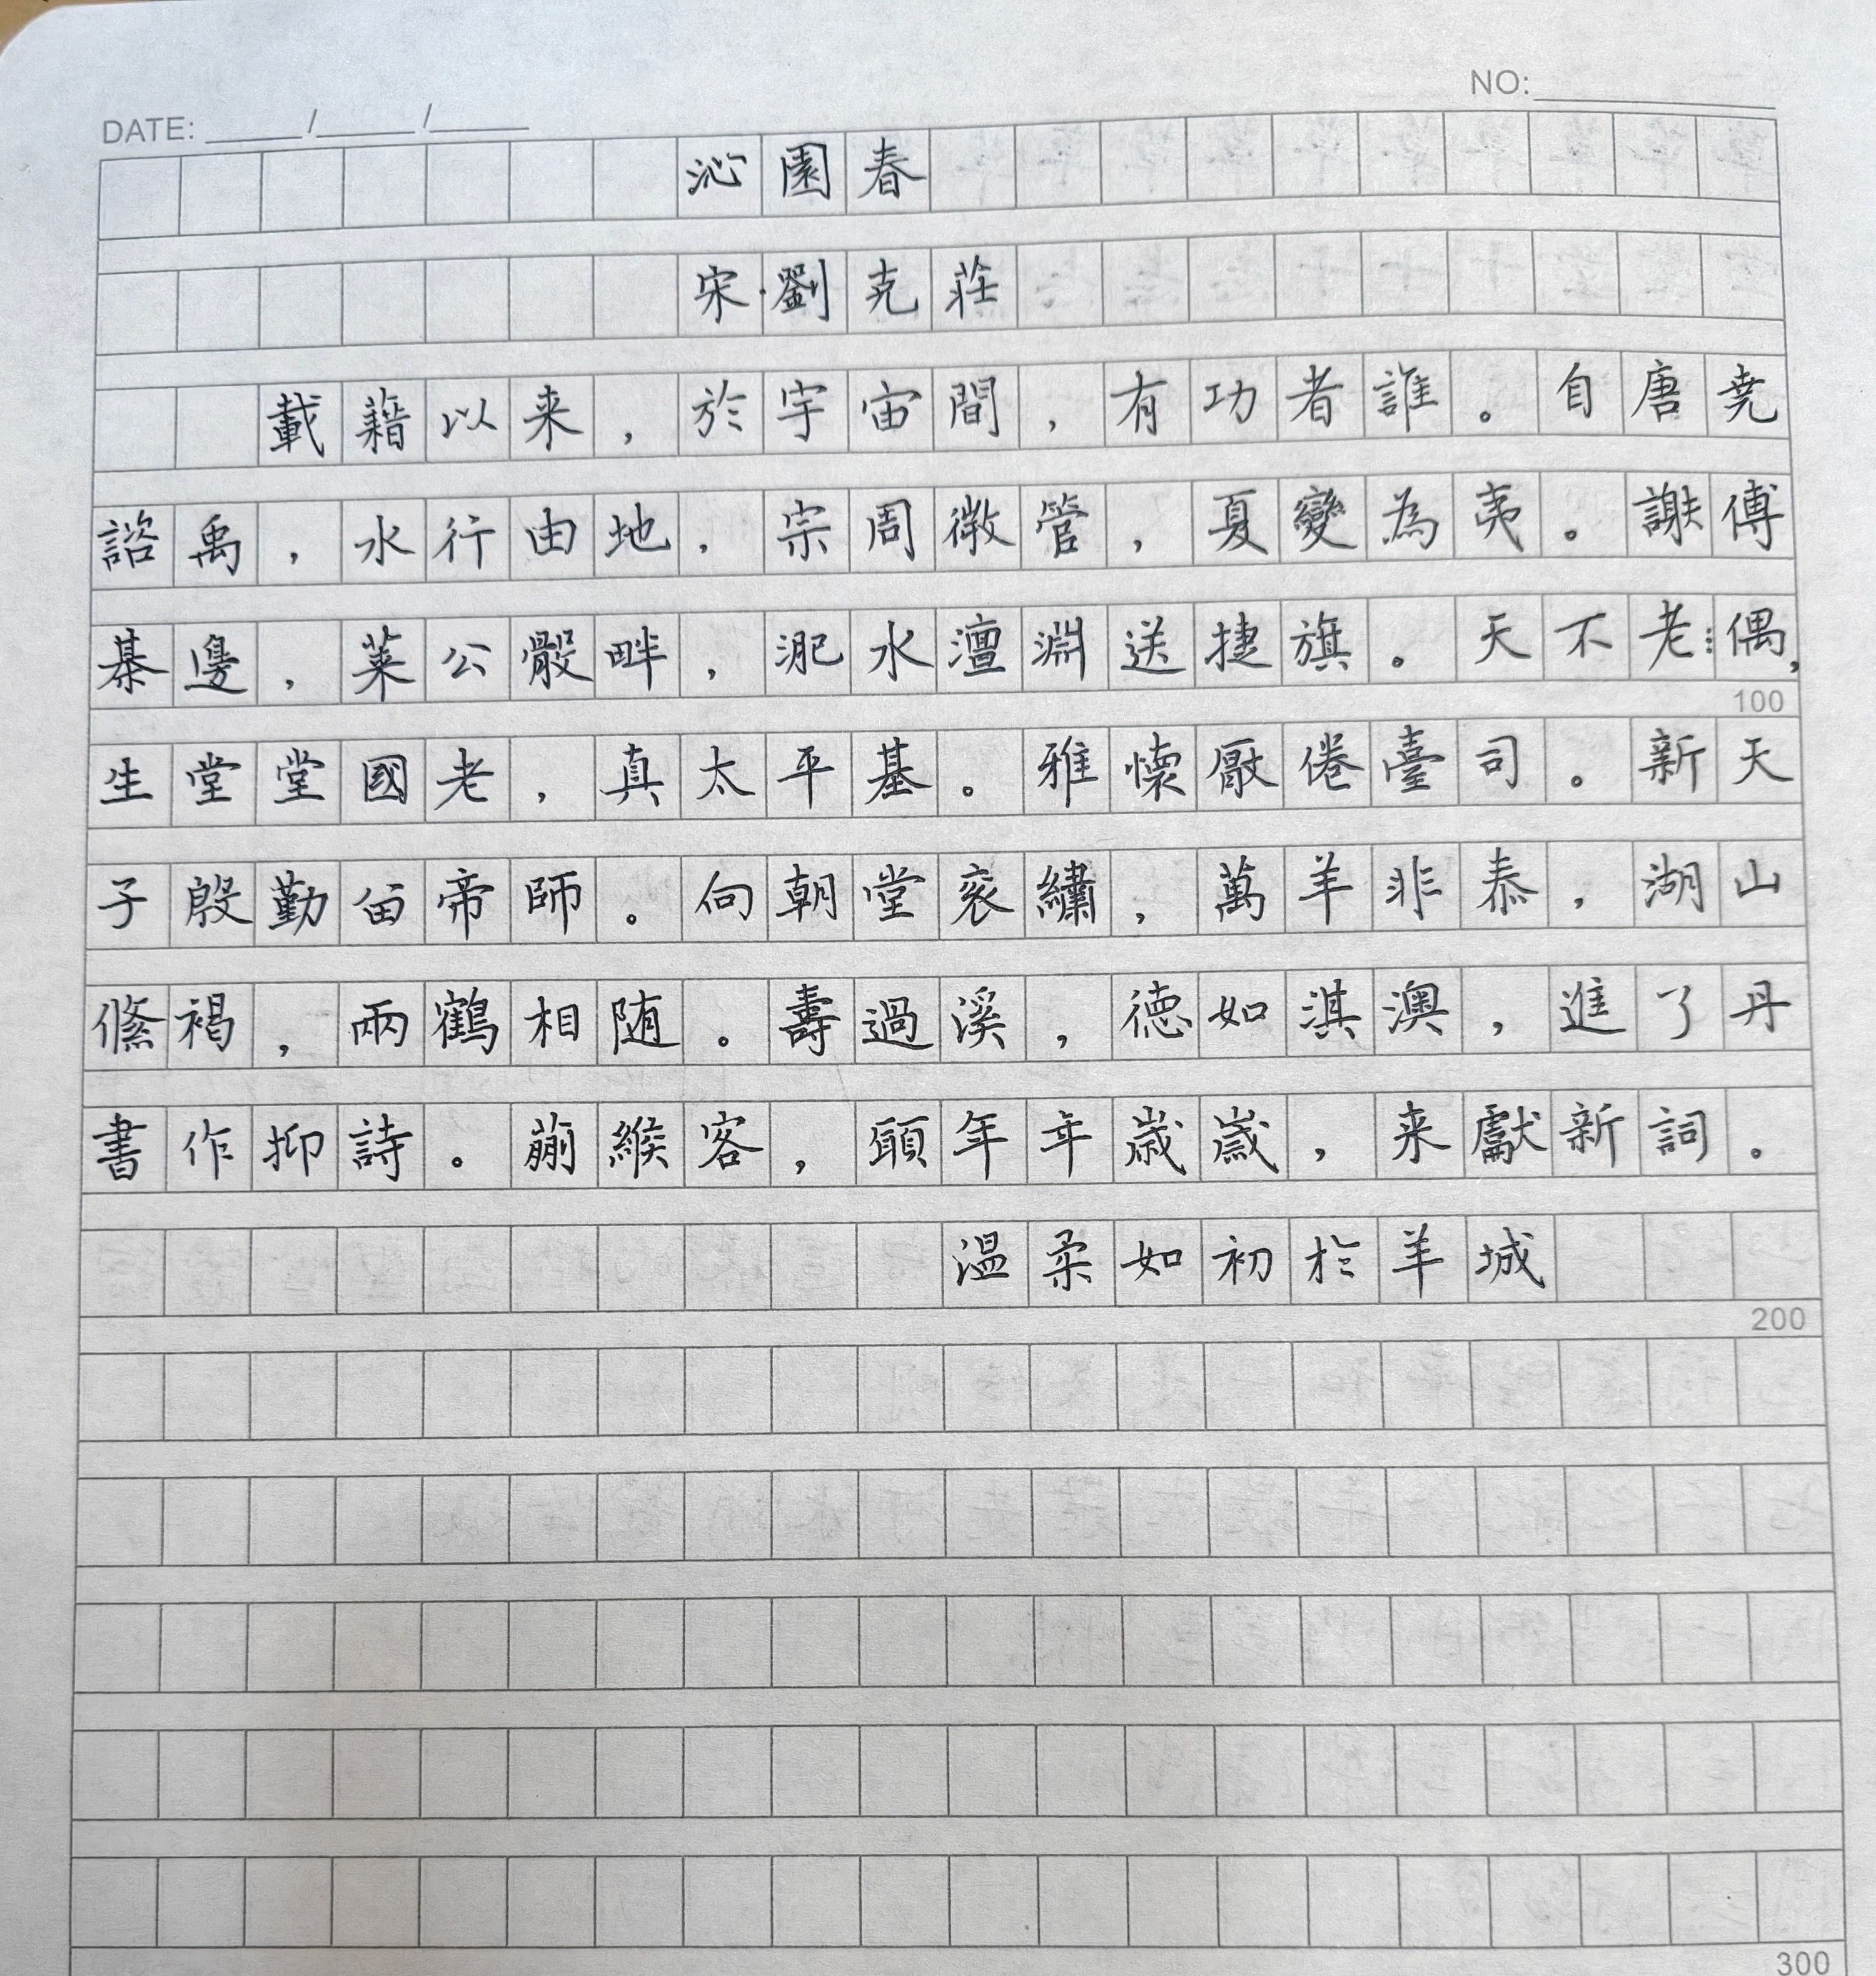 DATE: ____/____/____
NO:
沁園春
宋·劉克莊
載籍以来，於宇宙間，有功者誰。自唐堯
諮禹，水行由地，宗周微管，夏變為夷。謝傅
棊邊，萊公骰畔，淝水澶淵送捷旗。天不老：偶，
100
生堂堂國老，真太平基。雅懷厭倦臺司。新天
子殷勤留帝師。向朝堂袞繡，萬羊非泰，湖山
絛褐，兩鶴相随。壽過溪，德如淇澳，進了丹
書作抑詩。蒯緱客，願年年歲歲，来獻新詞。
温柔如初於羊城
200
300